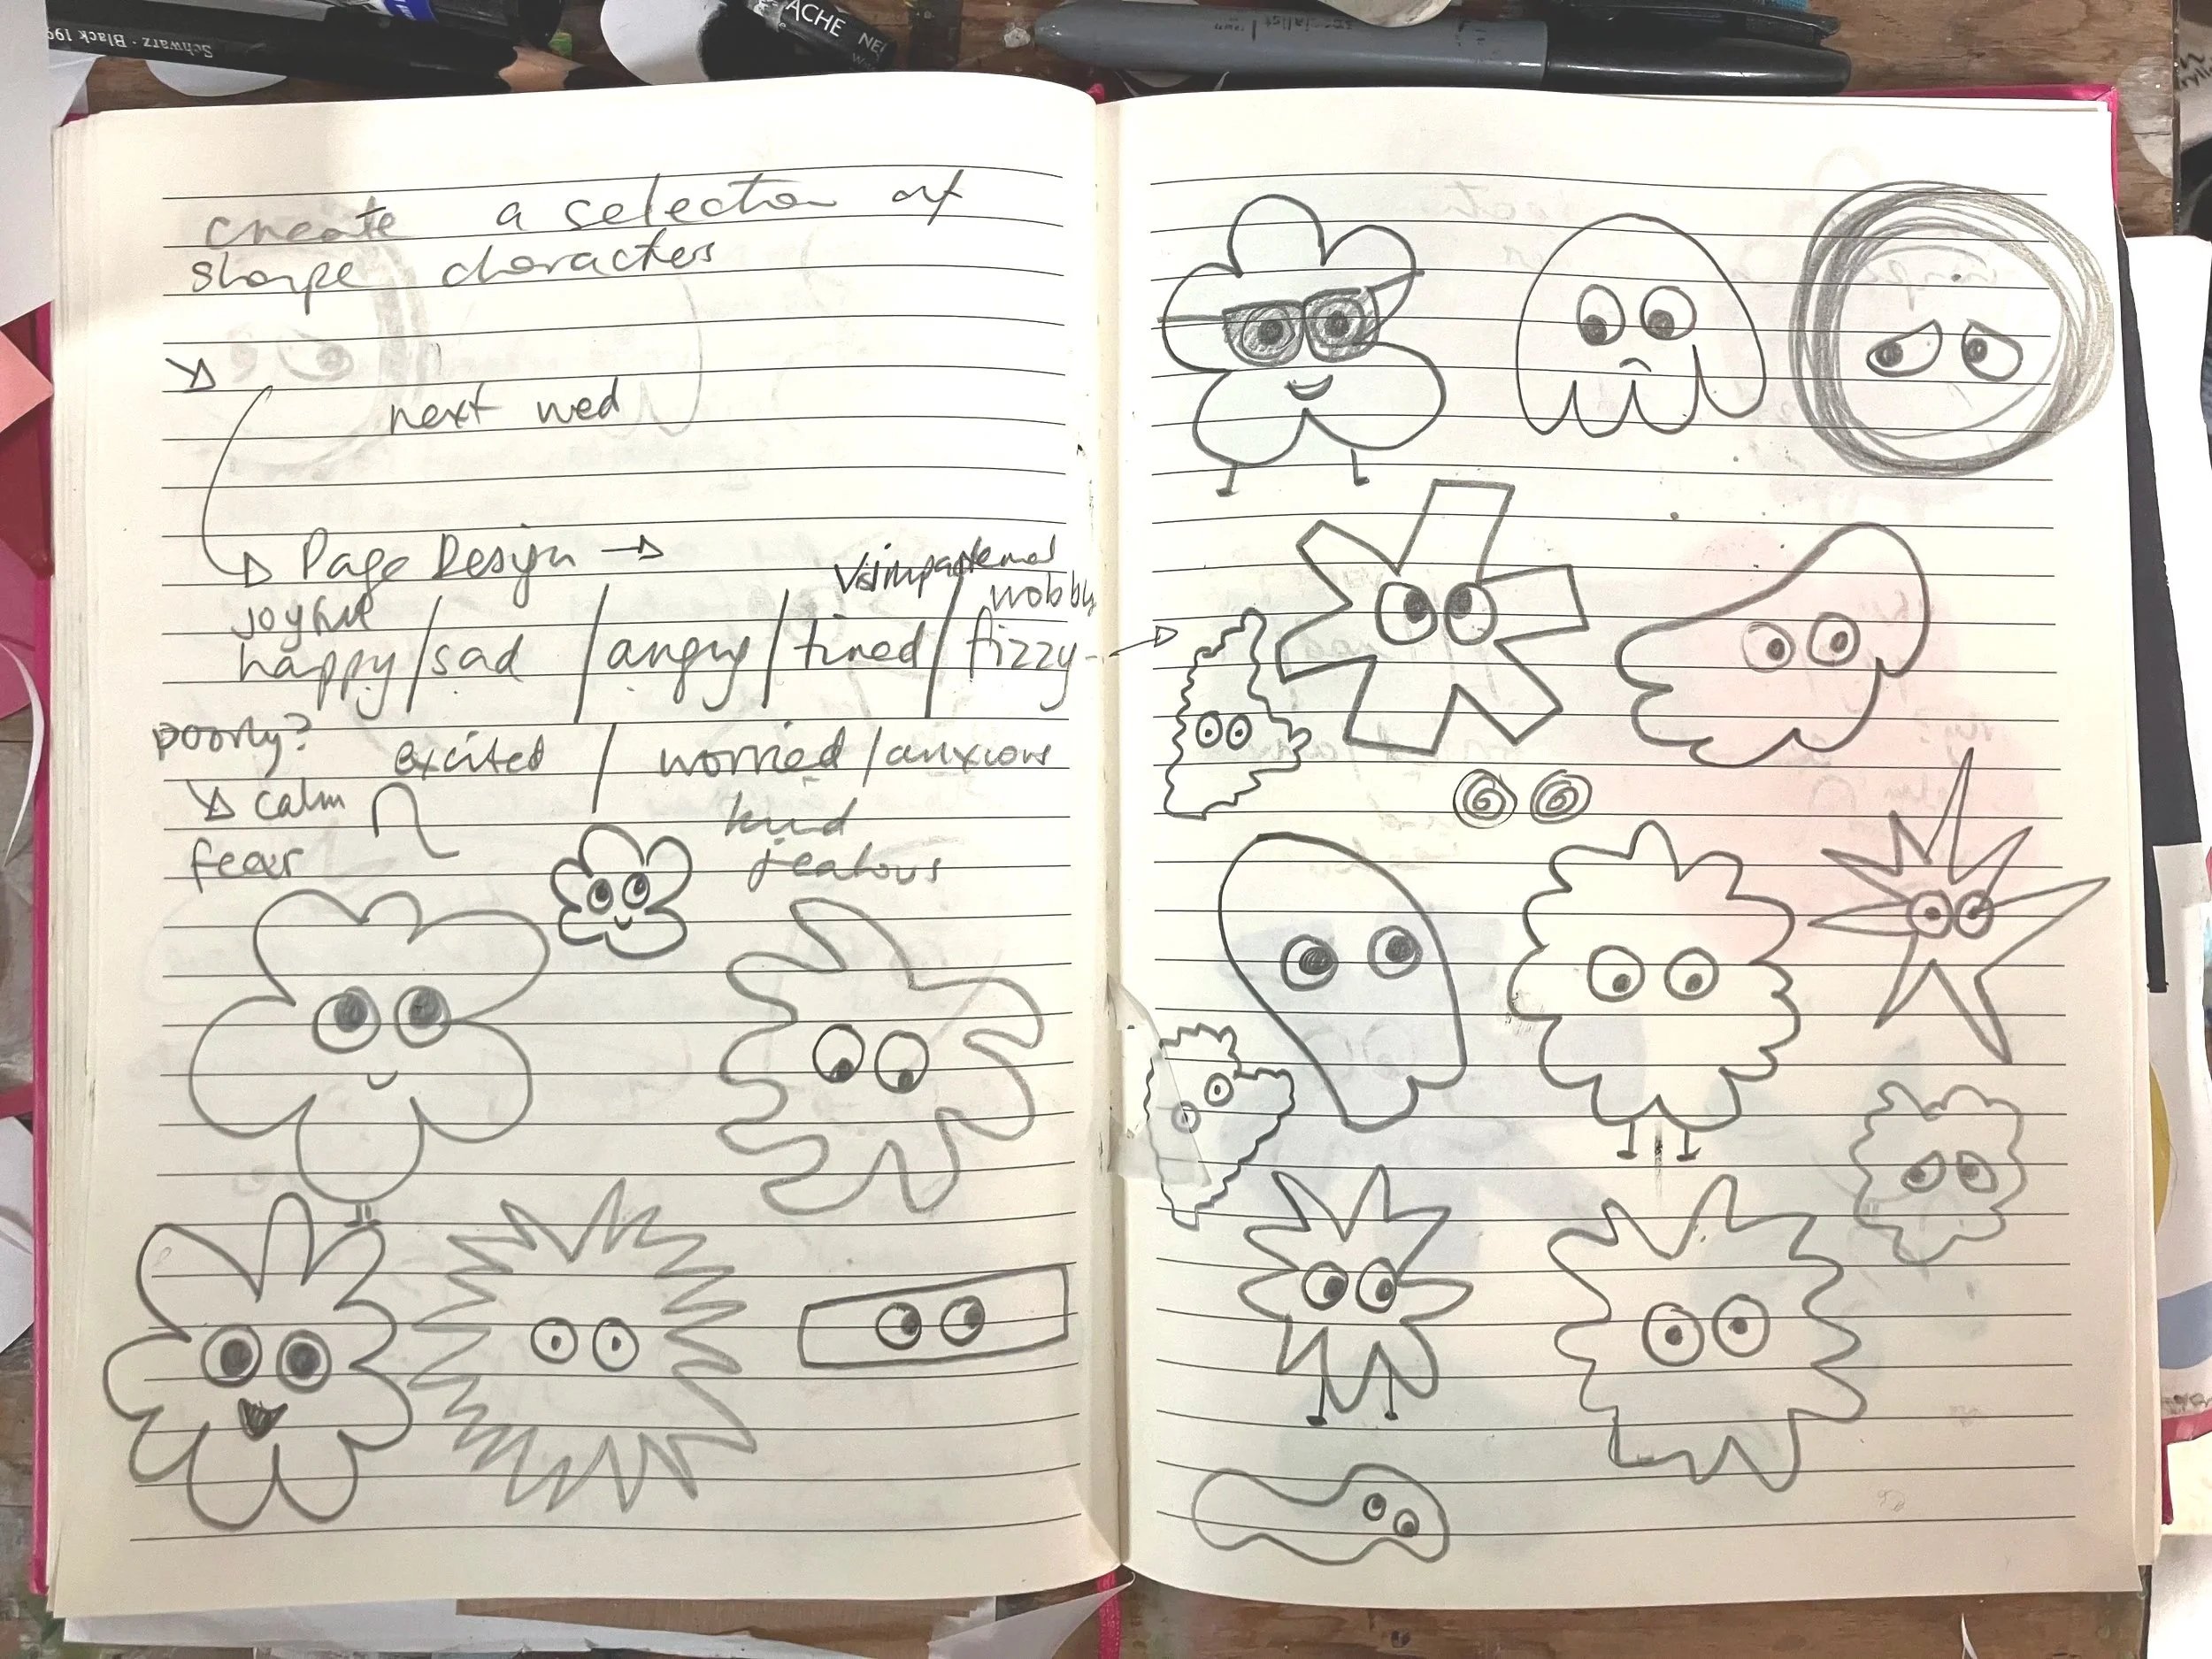 Schwarz · Black 199
ACHE
NE
specialist
create a selection of
shape characters
next wed
Page Design
wobbly
joyful
happy / sad / angry / tired / fizzy
poorly?
excited / worried / anxious
calm
kind
fear
jealous